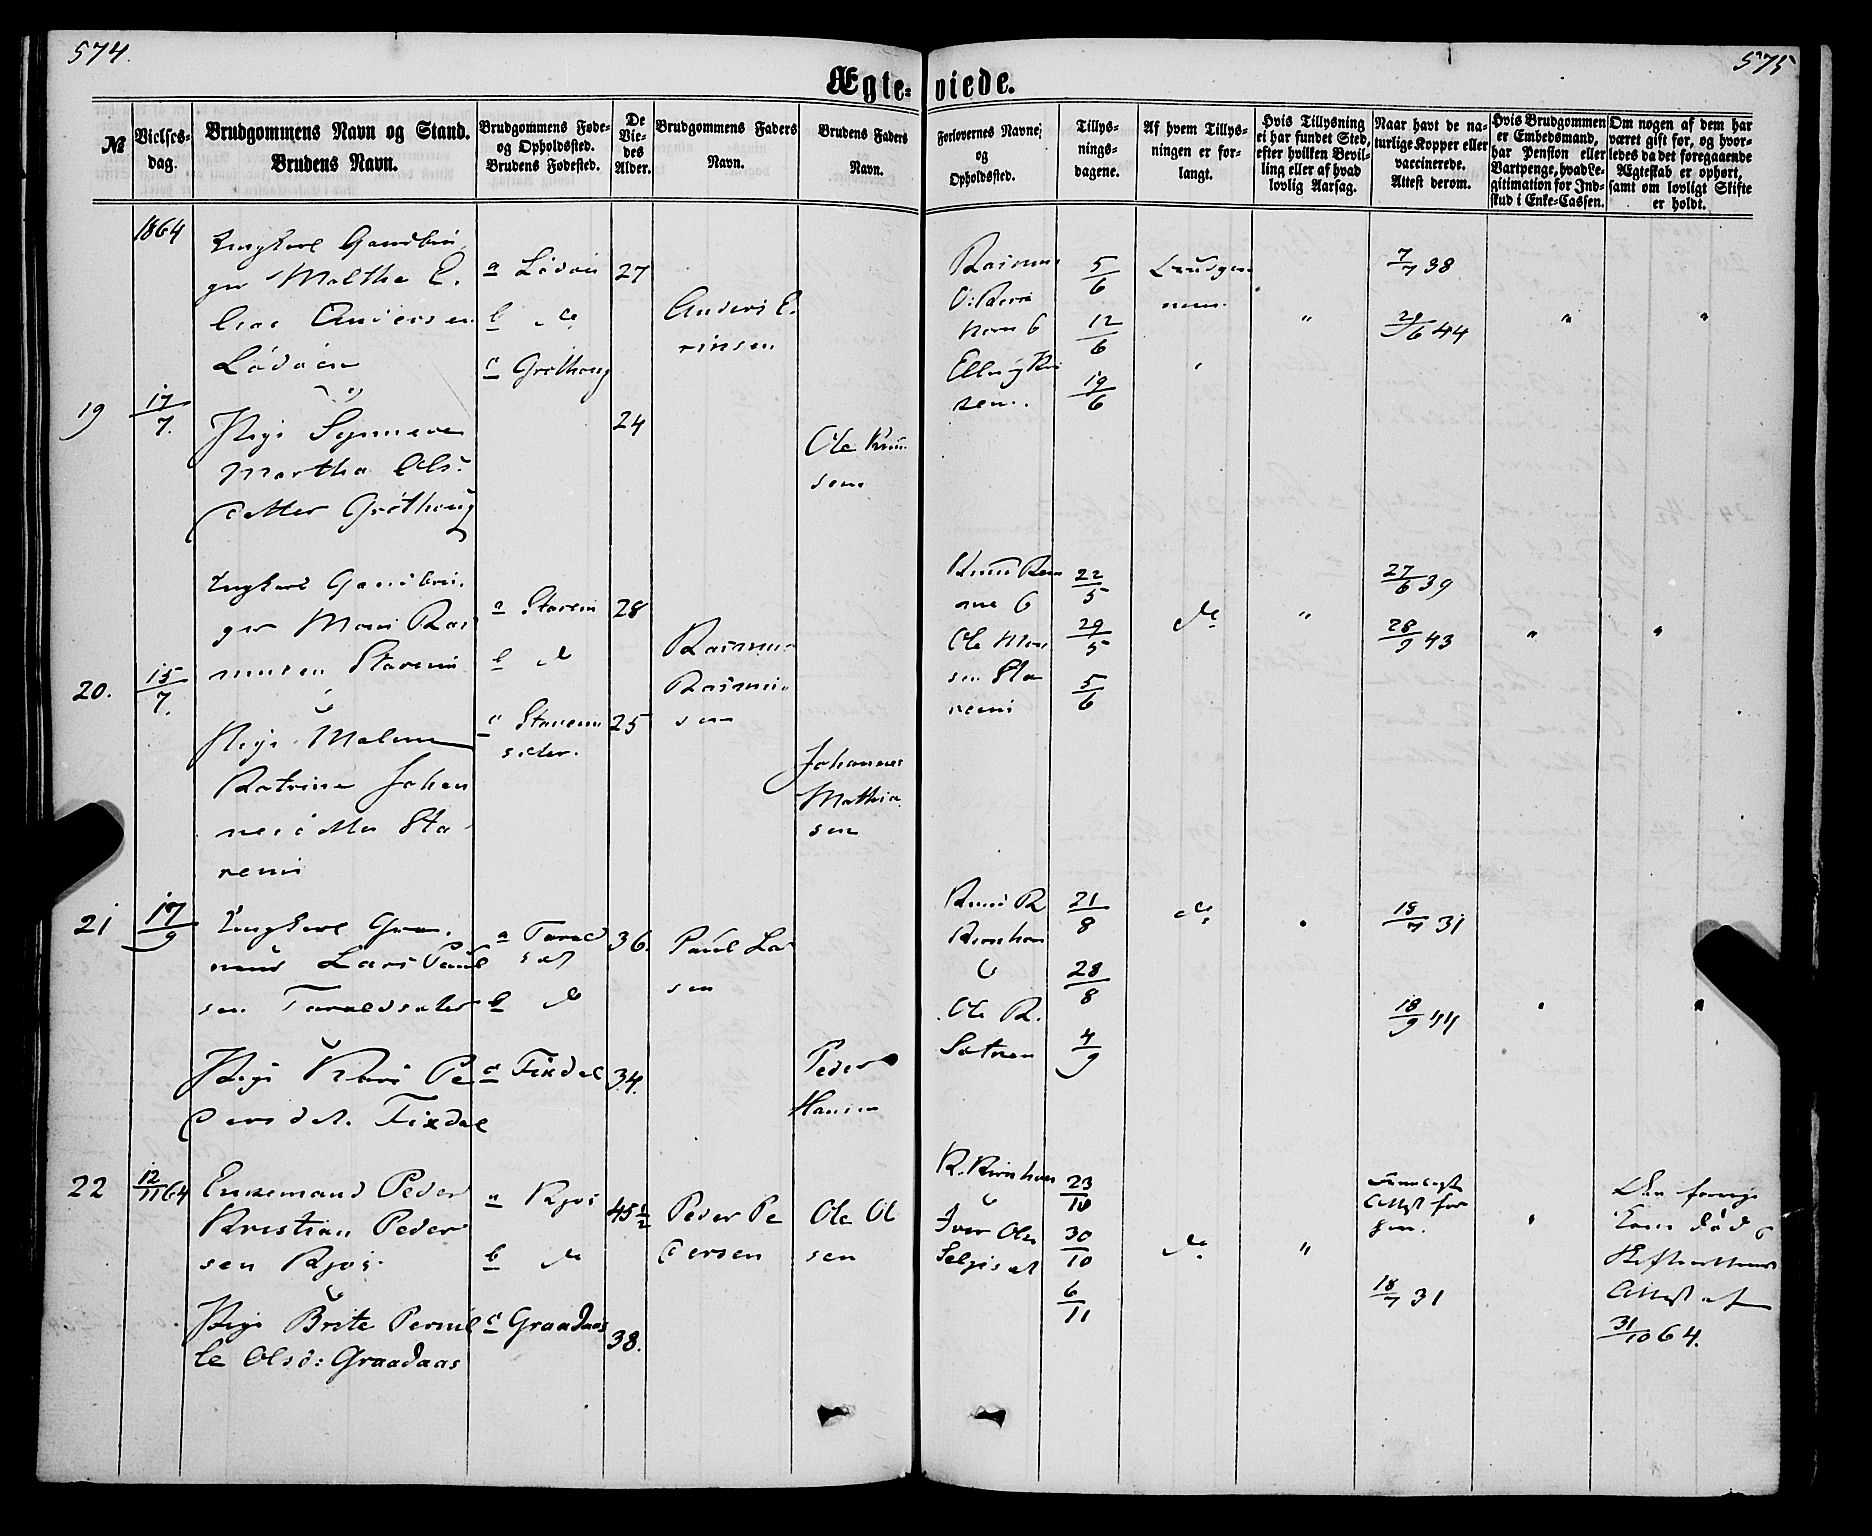 574.
575
Ægte-
viede.
№
Vielses-
dag.
Brudgommens Navn og Stand.
Brudens Navn.
Brudgommens Føde-
og Opholdssted.
Brudens Fødested.
De
Vie-
des
Alder.
Brudgommens Faders
Navn.
Brudens Faders
Navn.
Forlovernes Navne
og
Opholdssted.
Tillys-
nings-
dagene.
Af hvem Tillys-
ningen er for-
langt.
Hvis Tillysning
ei har fundet Sted,
efter hvilken Bevil-
ling eller af hvad
lovlig Aarsag.
Naar havt de na-
turlige Kopper eller
vaccinerede.
Attest derom.
Hvis Brudgommen
er Embedsmand,
har Pension eller
Vartpenge, hvad Le-
gitimation for Ind-
skud i Enke-Cassen.
Om nogen af dem har
været gift før, og hvor-
ledes da det foregaaende
Ægteskab er ophørt,
samt om lovligt Skifte
er holdt.
1864
19
17/7.
Ungkarl Gaardbru
ger Malthe E.
lias Andersen
Lødøen
Pige Synneve
Martha Ols-
datter Grøthaug
a Lødøen
b do
c Grøthaug
27
24
Anders E.
rinsen
Ole Knu
sen
Rasmus
5/6
12/6
19/6
Brudgom
men.
"
7/7 38
29/6 44
"
"
20.
15/7.
Ungkarl Gaardbru.
ger Mons Ras
musen Staveni
Pige Malene
Katrine Johan
nesdatter Sta-
veni
a Staveni
b do
c Staveni
28
25
Rasmus
Rasmus
sen
Johannes
Mathia
sen
Ole Mon
sen Sta
veni
22/5
29/5
5/6
do
"
27/6 39
28/9 43
"
"
21
17/9
Ungkarl Gra.
Lars Paul
sen Taraldsæter
Pige Kari Pe
dersdt. Fixdal
a Tarald
sæt
b do
c Fixdal
36.
34.
Paul Lar
sen
Peder
Hansen
Knud R
Ole R.
Sætren
21/8
28/8
4/9
do
18/7 31
18/9 44
22
12/11 64
Enkemand Peder
Kristian Peder
sen Kjøs.
Pige Brite Pernil
le Olsd: Graadaas
a Kjøs
b do
c Graadaas
45 1/2
38.
Peder Pe
dersen
Ole Ol
sen
Iver Ols
Seljeset
23/10
30/10
6/11
do
"
Attest for
18/7 31
"
Den forrige
Kone død
Attest af
31/10 64.